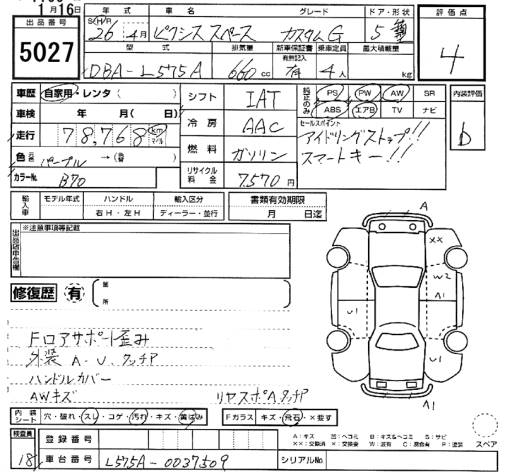 1月16日
出品番号
5027
年式 車名 グレード ドア・形状
S(H)R 26年4月 ピクシス スペース カスタムG 5
型式 排気量 新車保証書 有無記入 乗車定員 最大積載量
DBA-L575A 660cc 有 4人 kg
評価点
4
車歴 自家用・レンタ( )
車検 年 月( 日)
走行 78,768 km マイル
色 元色 パープル →(替 )
カラーNo. B70
シフト IAT
冷房 AAC
燃料 ガソリン
リサイクル料金 7,570円
純正のみ PS PW AW SR
ABS エアB TV ナビ
セールスポイント
アイドリングストップ!!
スマートキー!!
内装評価
b
輸入車 モデル年式 ハンドル 輸入区分
右H・左H ディーラー・並行
書類有効期限
月 日迄
※注意事項等記載
修復歴 有 箇所
Fロアサポート歪み
外装 A-U.タッチア
ハンドルカバー
AWキズ
リヤスポAタッチア
A
XX
W2
A1
U1
A1
U1
A1
スペア
内装シート 穴・破れ・スレ・コゲ・汚れ・キズ・黄ばみ
Fガラス キズ・飛石・×要す
検査員 18
登録番号
車台番号 L575A-0037509
シリアルNo.
A:キズ U:凹ミ B:キズ&ヘコミ S:サビ
XX:交換済 X:交換要 W:波有 C:腐食有 P:塗装